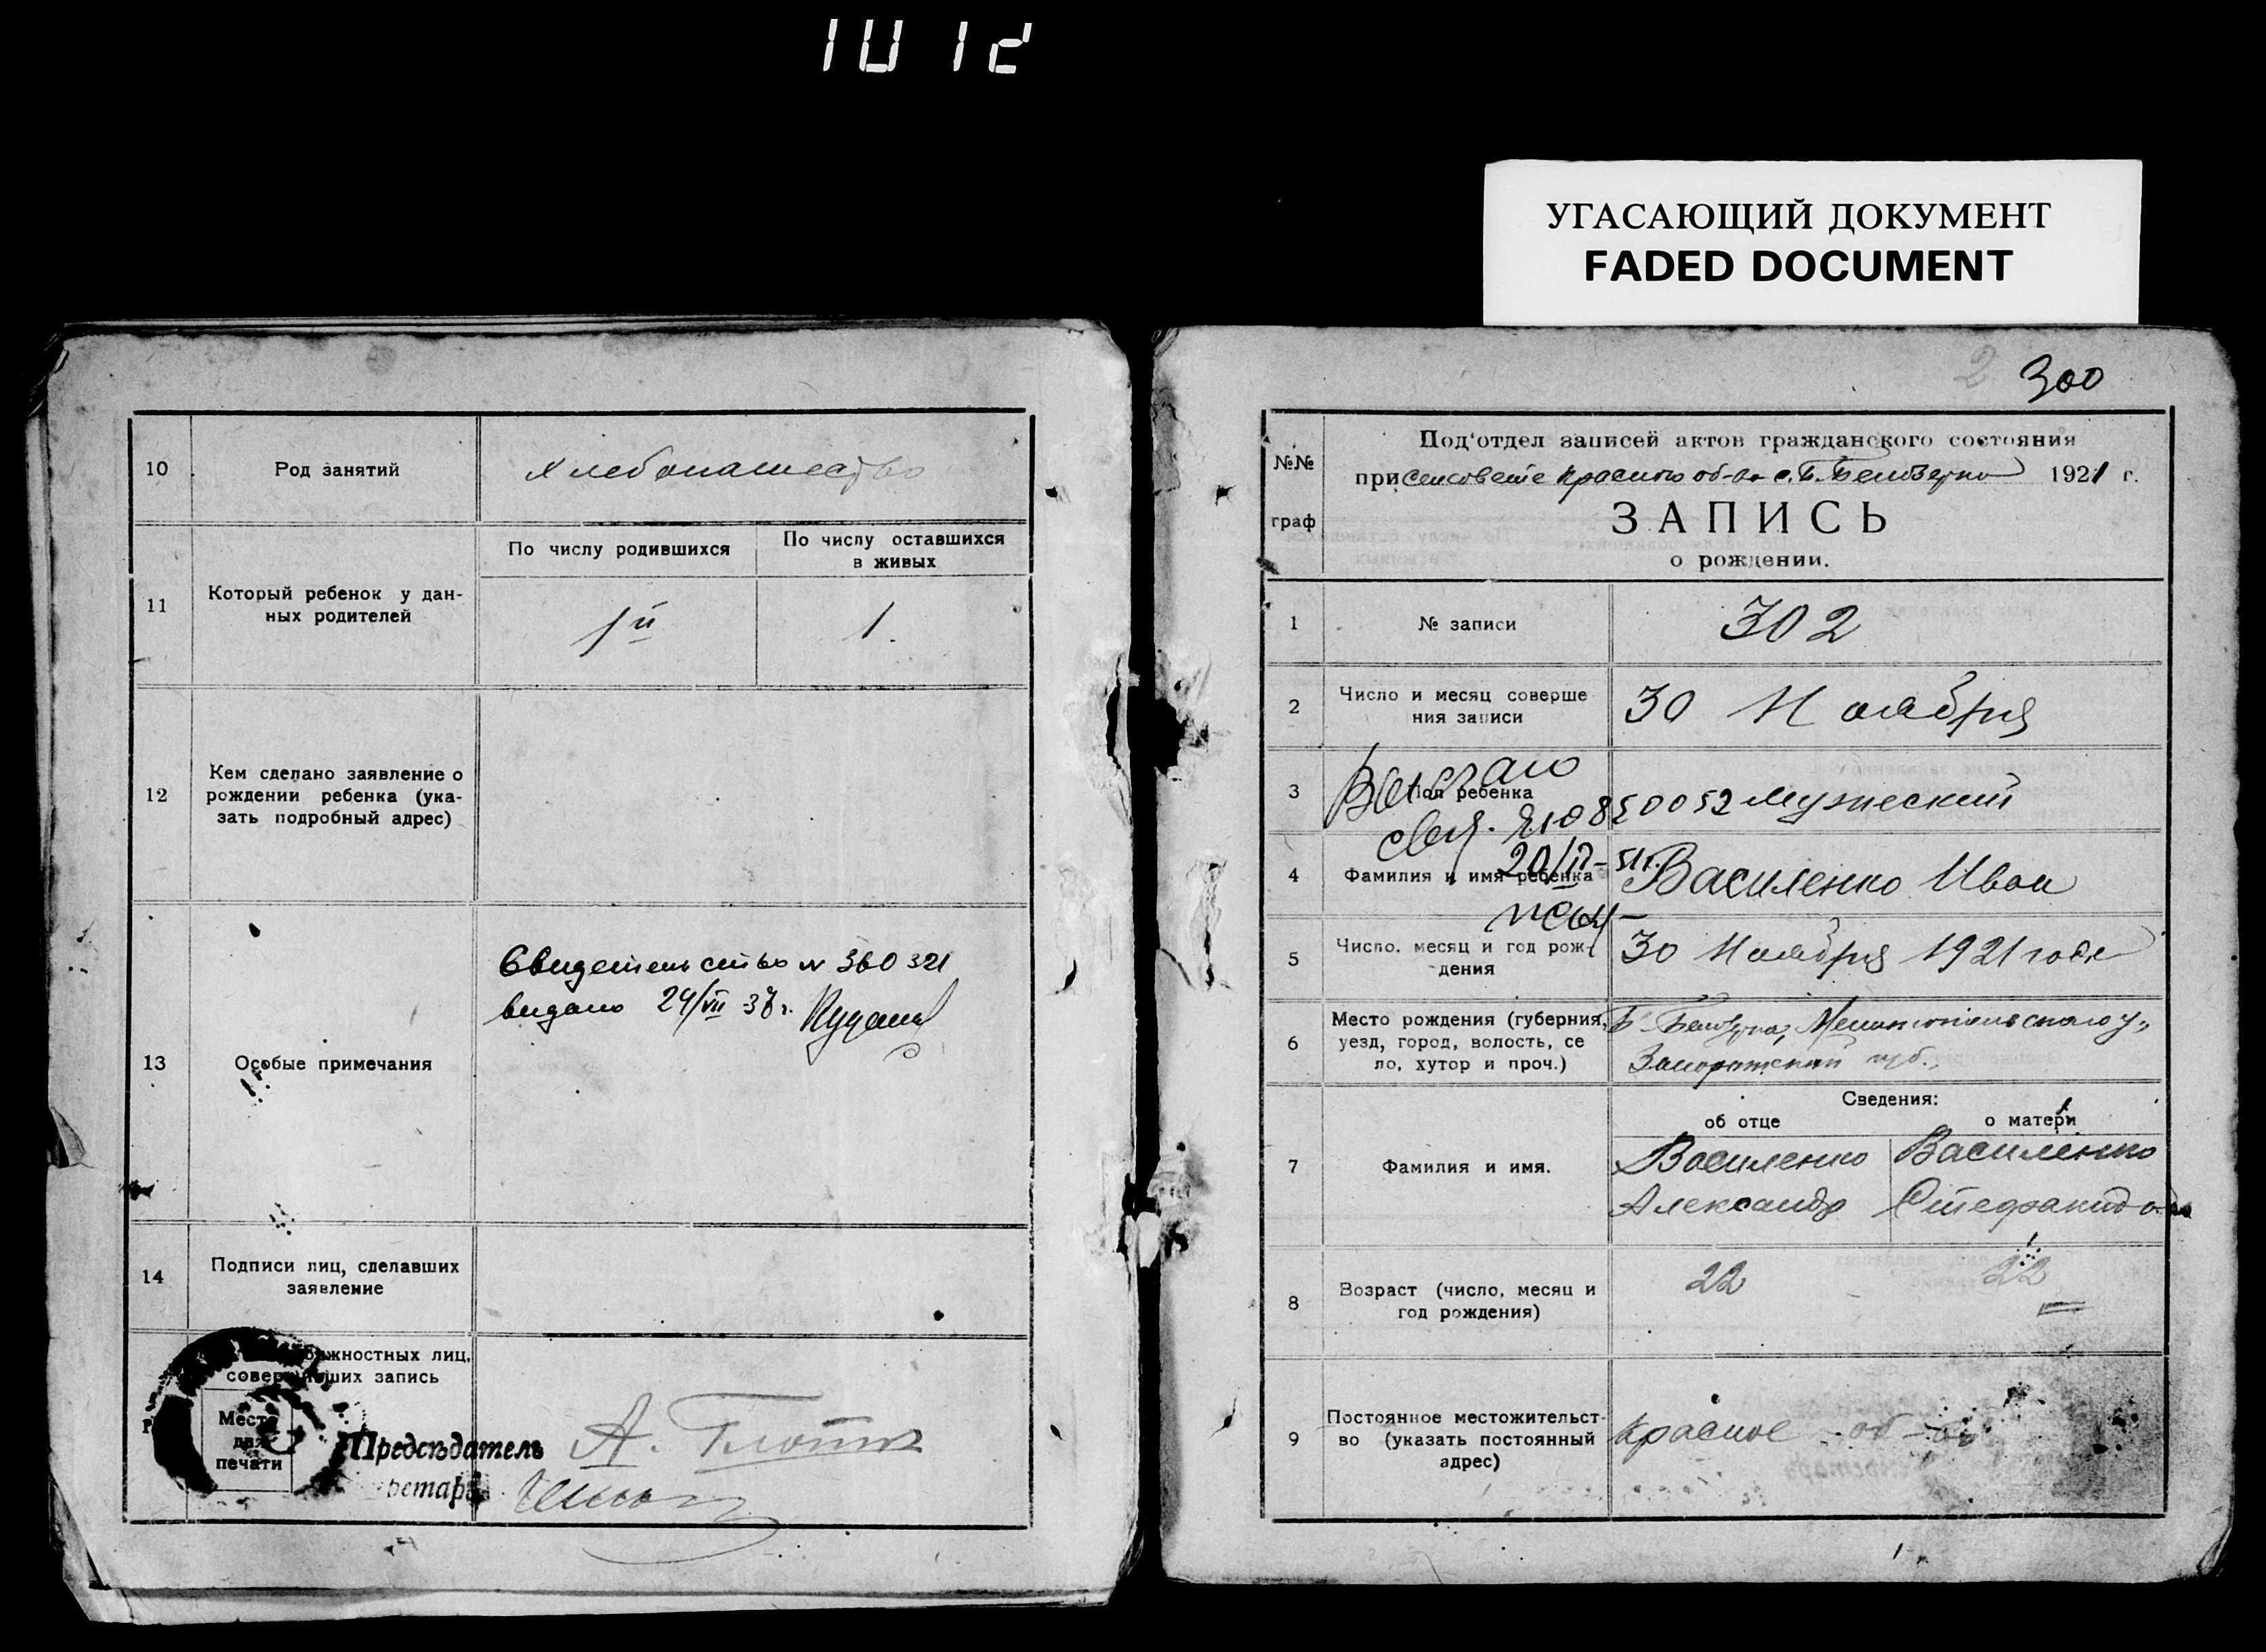 УГАСАЮЩИЙ ДОКУМЕНТ
FADED DOCUMENT
10
Род занятий
Хлебопашество
11
Который ребенок у дан-
ных родителей
По числу родившихся
По числу оставшихся
в живых
1й
1.
12
Кем сделано заявление о
рождении ребенка (ука-
зать подробный адрес)
13
Особые примечания
Свидетельство N 360321
видано 24/VII 37 г.
14
Подписи лиц, сделавших
заявление
жностных лиц,
совершивших запись
Место
для
печати
Предсѣдатель
А.
ретарь
300
№№
граф
Под'отдел записей актов гражданского состояния
при сельсовете Красного об-ва с. Б. Белозерко 1921 г.
ЗАПИСЬ
о рождении.
1
№ записи
302
2
Число и месяц соверше
ния записи
30 Ноября
3
Пол ребенка
Мужеский
Выдано
свид. ЯЮ 850052
20/II-51г.
4
Фамилия и имя ребенка
Василенко Иван
5
Число, месяц и год рож-
дения
30 Ноября 1921 года
6
Место рождения (губерния,
уезд, город, волость, се
ло, хутор и проч.)
Б-Белозерка, Мелитопольского у.,
Запорожской губ.
7
Фамилия и имя.
Сведения:
об отце
о матери
Василенко
Александр
Василенко
Стефанида
8
Возраст (число, месяц и
год рождения)
22
22
9
Постоянное местожительст-
во (указать постоянный
адрес)
Красное об-во